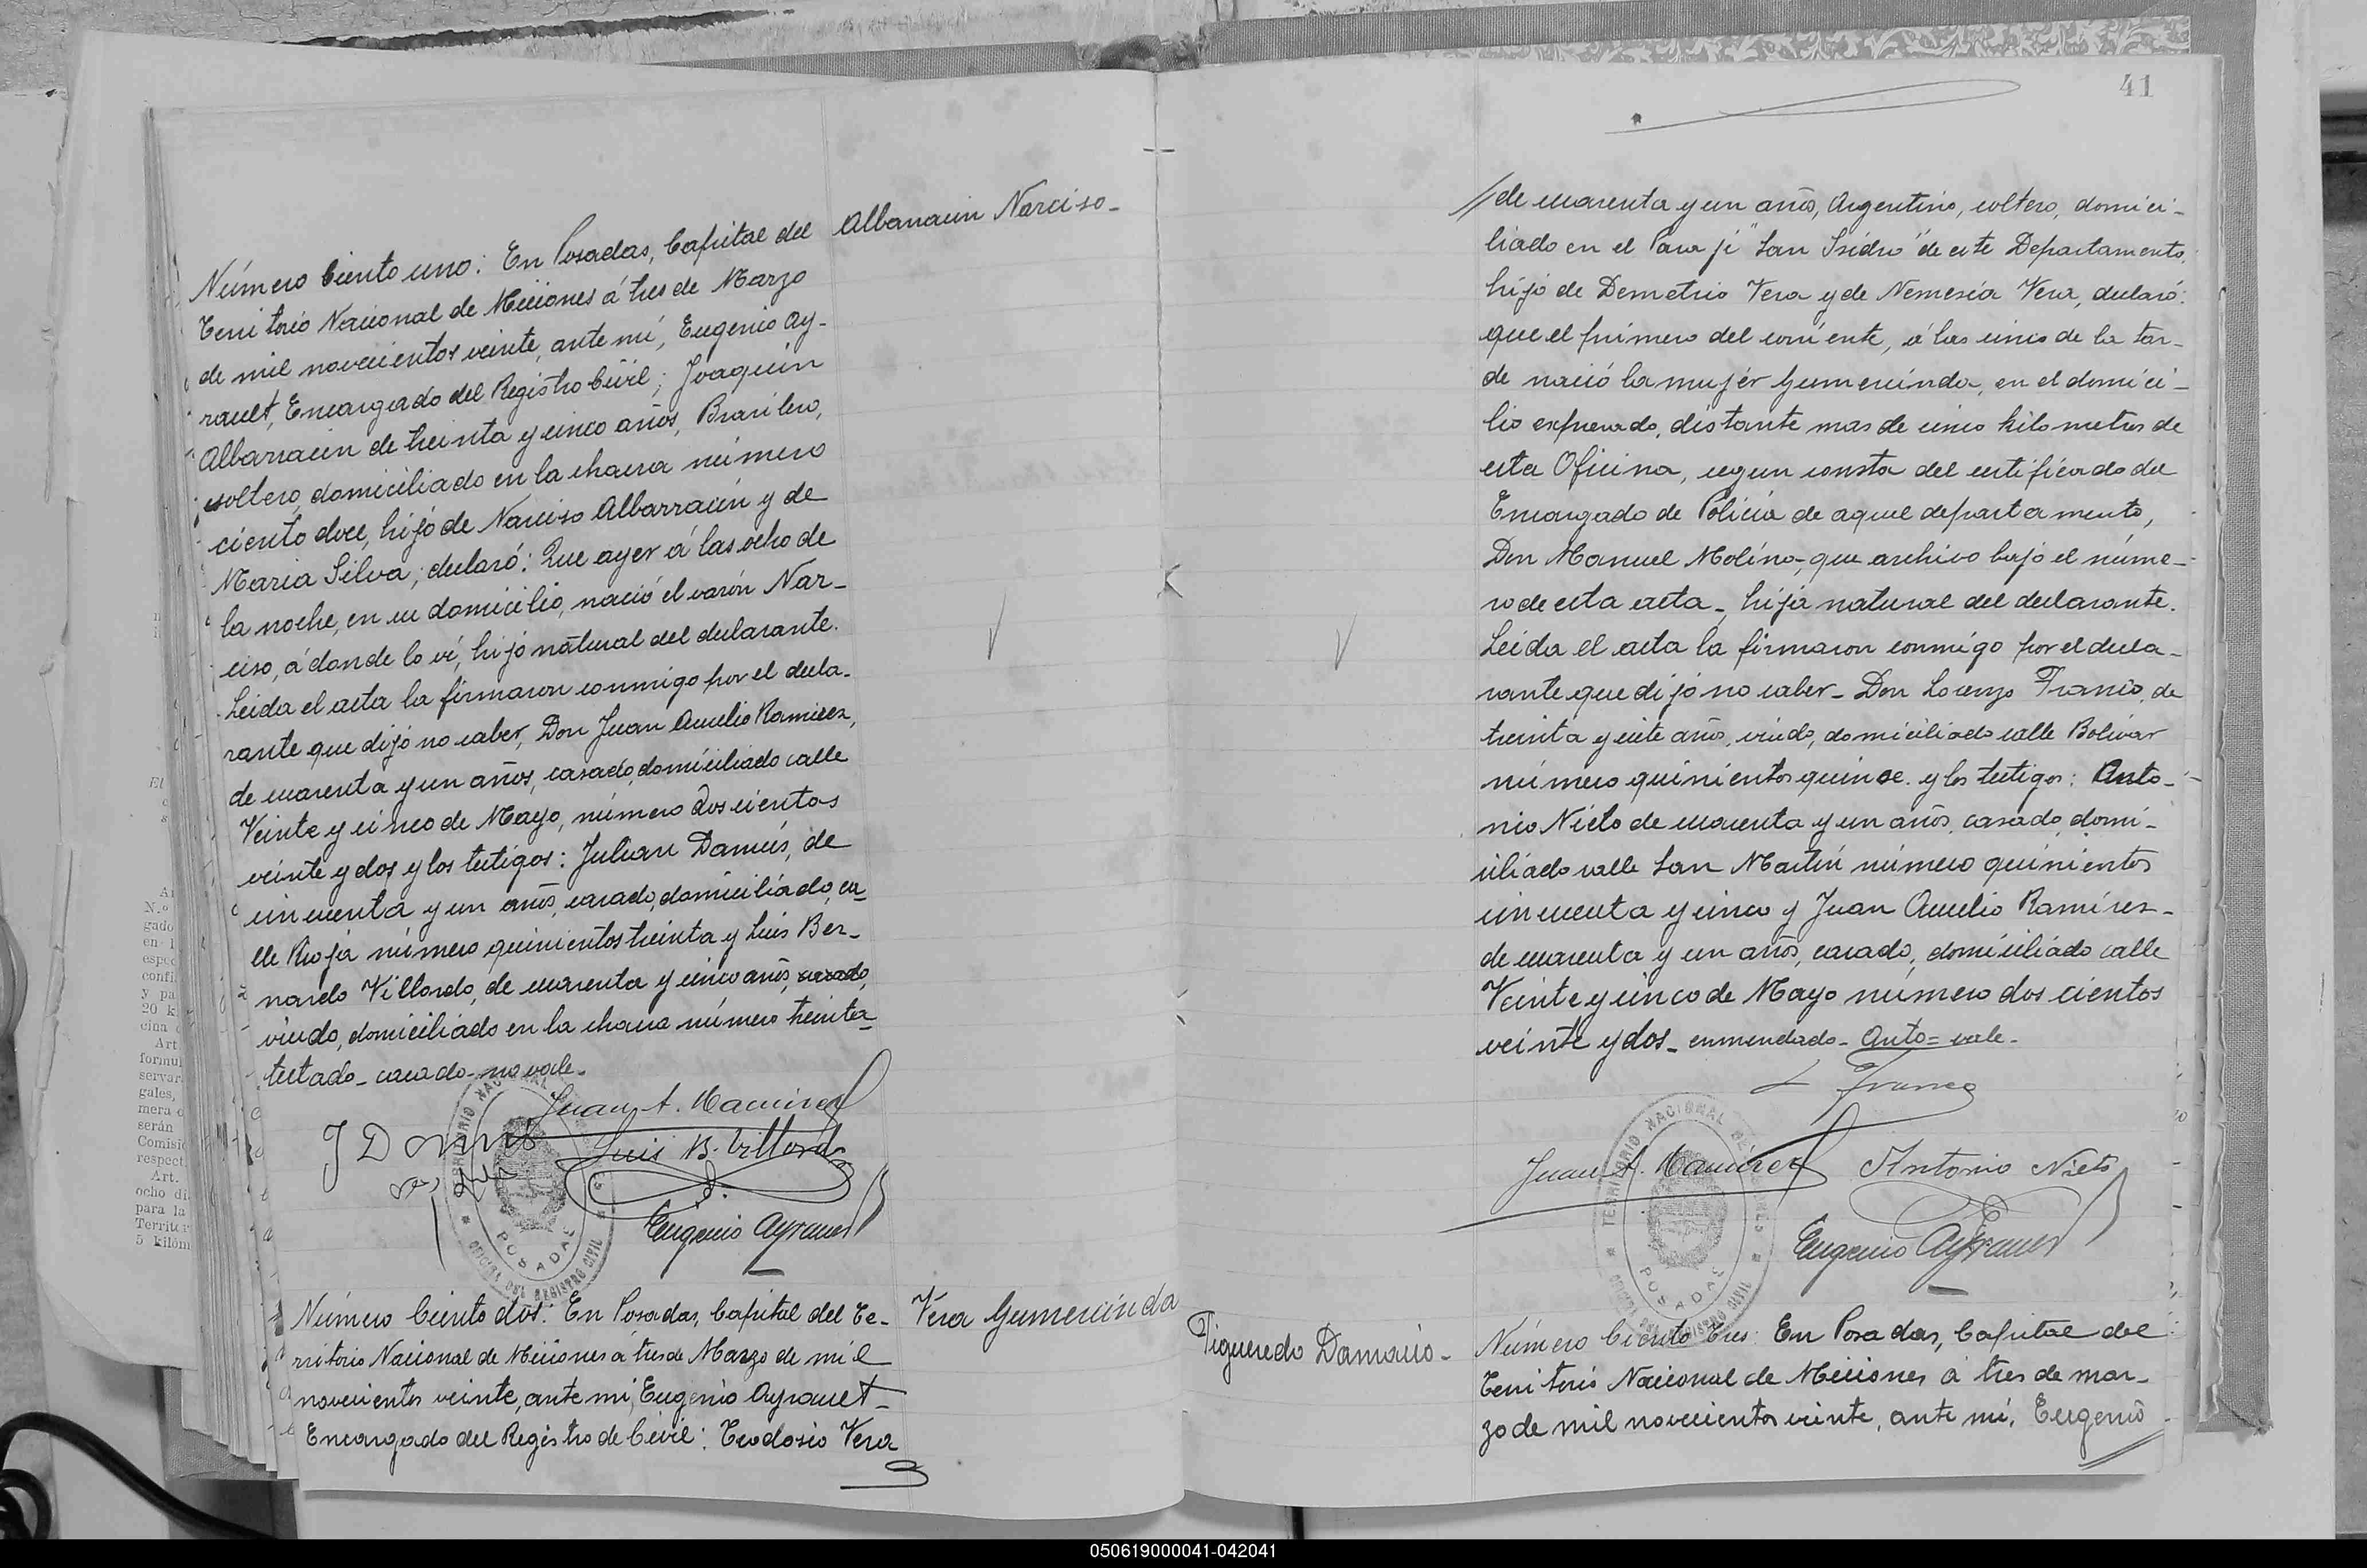 Albarracin Narciso-
Número Ciento uno: En Posadas, Capital del
Territorio Nacional de Misiones á tres de Marzo
de mil novecientos veinte, ante mí, Eugenio Ay-
rault, Encargado del Registro Civil; Joaquin
Albarracin de treinta y cinco años, Brasilero,
soltero, domiciliado en la chacra número
ciento doce, hijo de Narciso Albarracín y de
Maria Silva; declaró: Que ayer á las ocho de
la noche, en su domicilio, nació el varón Nar-
ciso, á donde lo ví, hijo natural del declarante.
Leida el acta la firmaron conmigo por el decla-
rante que dijó no saber, Don Juan Aurelio Ramirez,
de cuarenta y un años, casado, domiciliado calle
Veinte y cinco de Mayo, número doscientos
veinte y dos y los testigos: Julian Damús, de
cincuenta y un años, casado, domiciliado, ca-
lle Rioja número quinientos treinta y Luis Ber-
nardo Villordo, de cuarenta y cinco años, casado,
viudo, domiciliado en la chacra número treinta-
testado- casado- no vale-
Juan A. Ramirez
J Damús
Luis B. Villordo
Eugenio Ayrault
TERRITORIO NACIONAL DE MISIONES
POSADAS
OFICINA DEL REGISTRO CIVIL
Vera Gumercinda
Número Ciento dos: En Posadas, Capital del Te-
rritorio Nacional de Misiones á tres de Marzo de mil
novecientos veinte, ante mi, Eugenio Ayrault-
Encargado del Registro de Civil: Teodosio Vera
41
//de cuarenta y un años, Argentino, soltero, domici-
liado en el Paraje "San Isidro" de este Departamento,
hijo de Demetrio Vera y de Nemesia Vera, declaró:
que el primero del corriente, á las cinco de la tar-
de nació la mujér Gumercinda, en el domici-
lio expresado, distante mas de cinco kilometros de
esta Oficina, segun consta del certificado del
Encargado de Policia de aquel departamento,
Don Manuel Molino-, que archivo bajo el núme-
ro de esta acta-, hija natural del declarante.
Leida el acta la firmaron conmigo por el decla-
rante que dijó no saber- Don Lorenzo Franco, de
treinta y siete años, viudo, domiciliado calle Bolivar
número quinientos quince y los testigos: Anto-
nio Nieto de cuarenta y un años, casado, domi-
ciliado calle San Martín número quinientos
cincuenta y cinco y Juan Aurelio Ramírez-
de cuarenta y un años, casado, domiciliado calle
Veinte y cinco de Mayo numero dos cientos
veinte y dos- enmendado- Anto= vale-
L Franco
Juan A. Ramirez
Antonio Nieto
Eugenio Ayrault
TERRITORIO NACIONAL DE MISIONES
POSADAS
OFICINA DEL REGISTRO CIVIL
Figueredo Damacio-
Número Ciento tres: En Posadas, Capital del
Territorio Nacional de Misiones á tres de mar-
zo de mil novecientos veinte, ante mí, Eugenio
050619000041-042041